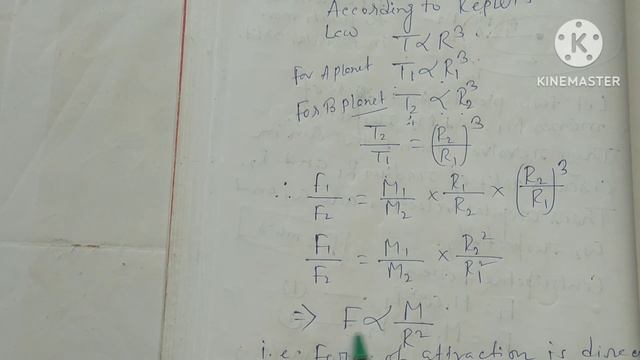 According to Kepler's
Law T ∝ R³
For A planet T₁ ∝ R₁³
For B planet T₂ ∝ R₂³
T₂/T₁ = (R₂/R₁)³
∴ F₁/F₂ = M₁/M₂ × R₁/R₂ × (R₂/R₁)³
F₁/F₂ = M₁/M₂ × R₂²/R₁²
⇒ F ∝ M/R²
i.e. Force of attraction is direc
K
KINEMASTER